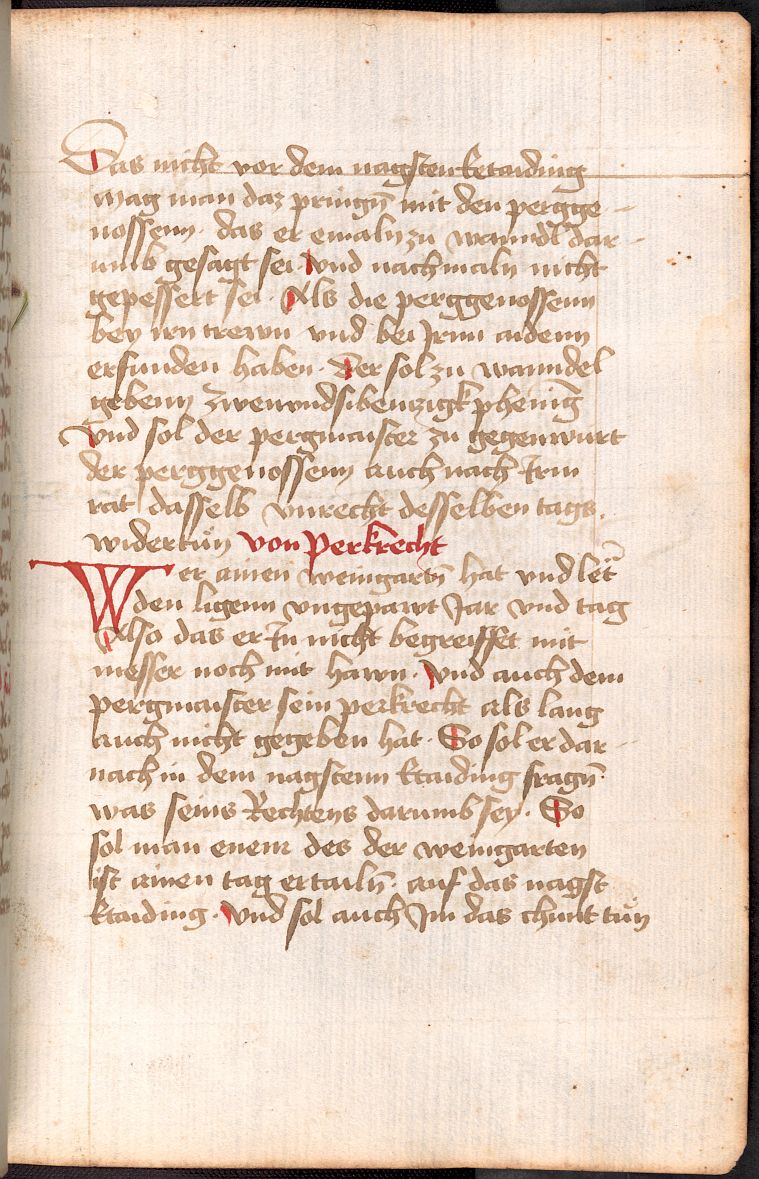 Das nicht vor dem nagsten ketaiding
mag man daz pringn̄ mit den pergge-
nossenn · das er emaln zu wanndl dar-
umb gesagt sei · Vnd nachmaln nicht
gepessert sei · Als die perggenossenn
bey irn trewn vnd bei Irnn aidenn
erfunden haben · Der sol zu wanndel
gebenn zwenvndsibenzigk phenīg
Vnd sol der pergmaister zu gegenwurt
der perggenossenn auch nach Irm
rat dasselb vnrecht desselben tags.
widertůn von Perkrecht
Wer ainen weingartn̄ hat vnd let̄
den ligenn vngepawt Jar vnd tag
Also das er In nicht begreiffet mit
messer noch mit hawn · Vnd auch dem
pergmaister sein perkrecht als lang
auch nicht gegeben hat · So sol er dar-
nach in dem nagstenn ktaiding fragn̄ ·
was seins Rechtens darumb sey · So
sol man enem des der weingarten
ist ainen tag ertailn̄ · auf das nagst
ktaiding · Vnd sol auch Im das chunt tůn